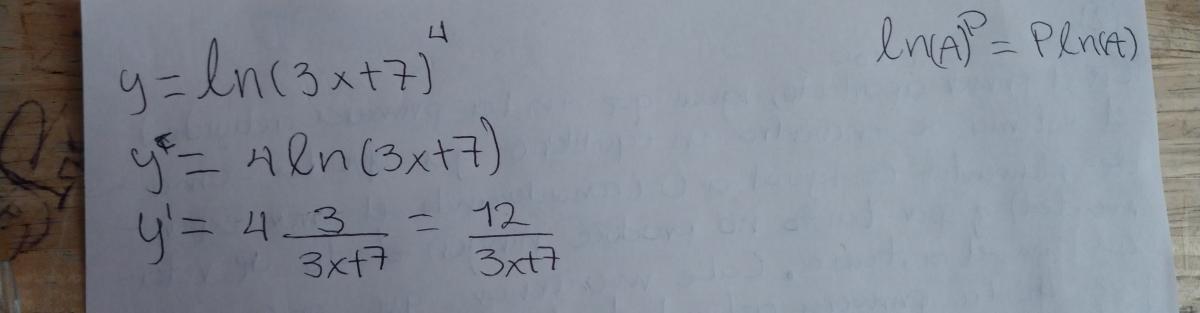 y = ln(3x+7)^4
ln(A)^P = P ln(A)
y = 4 ln(3x+7)
y' = 4 3/(3x+7) = 12/(3x+7)